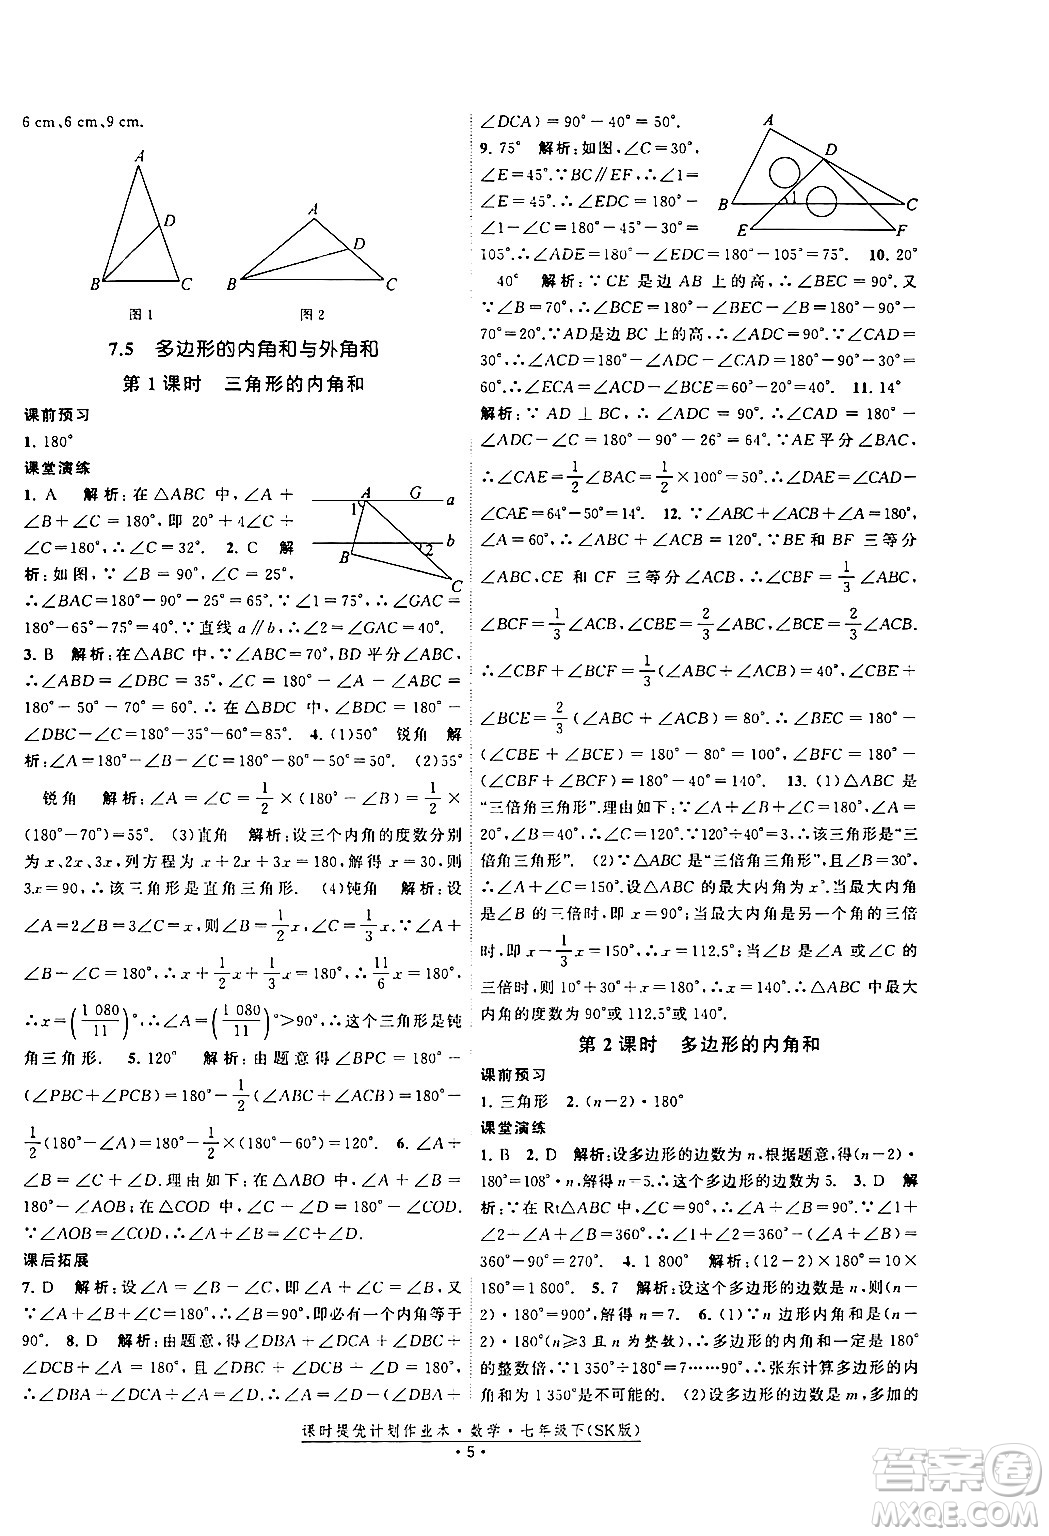 6 cm、6 cm、9 cm.
A
D
B
C
图 1
A
D
B
C
图 2
7.5 多边形的内角和与外角和
第 1 课时 三角形的内角和
课前预习
1. 180°
课堂演练
1. A 解析:在△ABC 中,∠A+
∠B+∠C=180°,即 20°+4∠C+
∠C=180°,∴∠C=32°. 2. C 解
析:如图,∵∠B=90°,∠C=25°,
A G a
1
b
B 2
C
∴∠BAC=180°-90°-25°=65°.∵∠1=75°,∴∠GAC=
180°-65°-75°=40°.∵直线 a∥b,∴∠2=∠GAC=40°.
3. B 解析:在△ABC 中,∵∠ABC=70°,BD 平分∠ABC,
∴∠ABD=∠DBC=35°,∵∠A=50°,∴∠C=180°-50°-70°=60°.∴在△BDC 中,∠BDC=180°-
∠DBC-∠C=180°-35°-60°=85°. 4. (1)50° 锐角 解
析:∠A=180°-100°-30°=50°,∴∠A 是锐角. (2)55°
锐角 解析:∠A=∠C=1/2×(180°-∠B)=1/2×
(180°-70°)=55°. (3)直角 解析:设三个内角的度数分别
为 x、2x、3x,列方程为 x+2x+3x=180,解得 x=30,则
3x=90,∴该三角形是直角三角形. (4)钝角 解析:设
∠A=2∠B=3∠C=x,则∠B=1/2x,∠C=1/3x.∵∠A+
∠B+∠C=180°,∴x+1/2x+1/3x=180°,∴11/6x=180°,
∴x=(1 080/11)°,∴∠A=(1 080/11)°>90°,∴这个三角形是钝
角三角形. 5. 120° 解析:由题意得∠BPC=180°-
(∠PBC+∠PCB)=180°-1/2(∠ABC+∠ACB)=180°-
1/2(180°-∠A)=180°-1/2×(180°-60°)=120°. 6. ∠A+
∠B=∠C+∠D 解析:在△ABO 中,∠A+∠B=180°
-∠AOB;在△COD 中,∠C+∠D=180°-∠COD.
∵∠AOB=∠COD,∴∠A+∠B=∠C+∠D.
课后拓展
7. D 解析:设∠A=∠B-∠C,则∠A+∠C=∠B,又
∵∠A+∠B+∠C=180°,∴∠B=90°,即必有一个内角等于
90°. 8. D 解析:由题意,得∠DBA+∠DBC+
∠DCB+∠DCA+∠A=180°,且∠DBC+∠DCB=90°,
∴∠DBA+∠DCA+∠A=90°,∴∠A=90°-(∠DBA+
∠DCA)=90°-40°=50°.
9. 75° 解析:如图,∠C=30°,
∠E=45°.∵BC∥EF,∴∠1=
∠E=45°,∴∠EDC=180°-
∠1-∠C=180°-45°-30°=
A
D
B 1 C
E F
105°.∴∠ADE=180°-∠EDC=180°-105°=75°. 10. 20°
40° 解析:∵CE 是边 AB 上的高,∴∠BEC=90°.又
∵∠B=70°,∴∠BCE=180°-∠BEC-∠B=180°-90°-
70°=20°.∵AD是边 BC 上的高,∴∠ADC=90°.又∵
∠ACD=180°-∠BCE-∠ACE=180°-20°-100°=
60°.∴∠ECA=∠BCE+∠ACD=20°+… 11. 14°
解析:∵AD⊥BC,∴∠ADC=90°,∴∠CAD=180°-
∠ADC-∠C=180°-90°-26°=64°.∵AE平分∠CAB,
∴∠CAE=1/2∠CAB=1/2×100°=50°,∴∠DAE=∠CAD-
∠CAE=64°-50°=14°. 12. 100° 解析:∵∠A=60°,
∴∠ABC+∠ACB=120°.∵BE 和 BF 三等分
∠ABC,CE 和 CF 三等分∠ACB,∴∠CBF=1/3∠ABC,
∠BCF=1/3∠ACB,∠CBE=2/3∠ABC,∠BCE=2/3∠ACB,
∴∠CBF+∠BCF=1/3(∠ABC+∠ACB)=40°,∠CBE+
∠BCE=2/3(∠ABC+∠ACB)=80°,∴∠BEC=180°-
(∠CBE+∠BCE)=180°-80°=100°,∠BFC=180°-
(∠CBF+∠BCF)=180°-40°=140°. 13. (1)△ABC 是
“三倍角三角形”.理由如下:∵∠A=40°,∠B=120°,∴∠C=
20°,∵∠B÷∠C=120°÷40°=3,∴该三角形是“三
倍角三角形”. (2)∵∠B=30°,∴∠A+
∠C=150°.设△ABC 的最大内角为 x°.当最大内角
是∠B 的三倍时,即 x=90°;当最大内角是另一个内角的三倍
时,即 x+1/3x=150°,∴x=112.5°;当∠B 是∠A 或∠C 的
三倍时,则 10°+30°+x=180°,∴x=140°.∴△ABC中最大
内角的度数为90°或112.5°或140°.
第 2 课时 多边形的内角和
课前预习
1. 三角形 2. (n-2)·180°
课堂演练
1. B 2. D 解析:设多边形的边数为 n,根据题意,得(n-2)·
180°=108°·n,解得 n=5.∴这个多边形的边数为 5. 3. D 解
析:∵在 Rt△ABC 中,∠A+∠B=90°,∴∠1+
∠2+∠A+∠B=360°,∴∠1+∠2=
360°-90°=270°. 4. 1 800° 解析:(12-2)×180°=10×
180°=1 800°. 5. 7 解析:设这个多边形的边数是 n,则(n-
2)·180°=900°,解得 n=7. 6. (1)∵n 边形内角和是(n-
2)·180°(n≥3 且 n 为整数),∴多边形的内角和一定是 180°
的整数倍.∵1 350°÷180°=7……90°,∴张东计算多边形的内
角和为 1 350°是不可能的. (2)设多边形的边数是 m,多加的
课时提优计划作业本·数学·七年级下(SK版)
·5·
答案圈
MXQE.COM